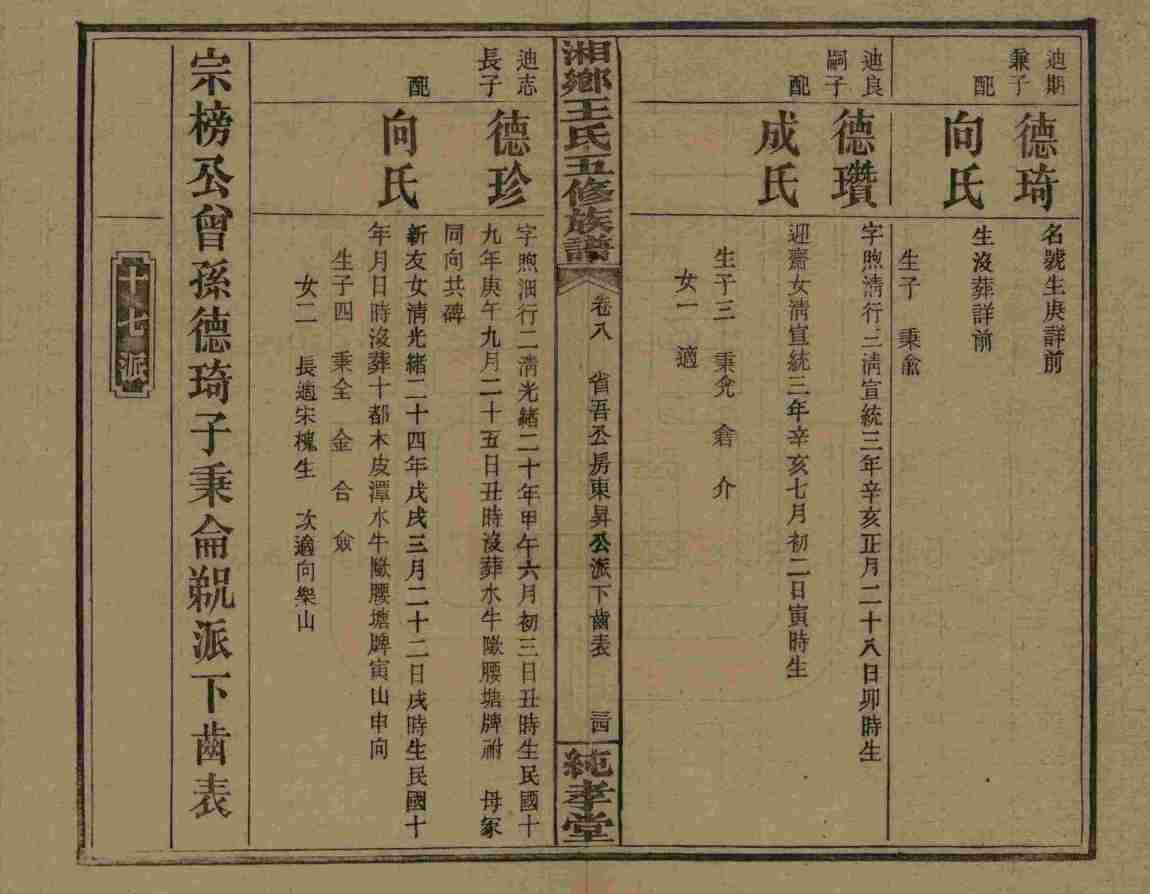 迪期
兼子
德琦
名號生庚詳前
配
向氏
生沒葬詳前
生子 秉兪
迪良
嗣子
德瓚
字煦淸行三淸宣統三年辛亥正月二十八日卯時生
配
成氏
迎齋女淸宣統三年辛亥七月初二日寅時生
生子三 秉兊 倉 介
女一 適
湘鄉王氏五修族譜
卷八 省吾公房東昇公派下齒表 三四
純孝堂
迪志
長子
德珍
字煦泗行二淸光緖二十年甲午六月初三日丑時生民國十
九年庚午九月二十五日丑時沒葬水牛㘭腰塘牌祔 母冢
同向共碑
配
向氏
新友女淸光緖二十四年戊戌三月二十二日戌時生民國十
年月日時沒葬十都木皮潭水牛㘭腰塘牌寅山申向
生子四 秉全 金 合 僉
女二 長適宋槐生 次適向樂山
宗榜公曾孫德琦子秉侖覶派下齒表
十七派